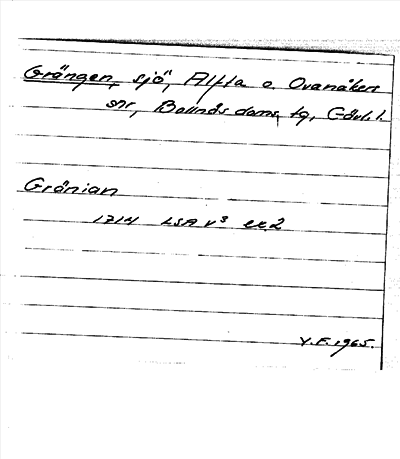 Grängen, sjö, Alfta o. Ovanåkers
snr, Bollnäs doms. tg, Gävl. l.
Gränian
1714 LSA v³ ex2
V.F. 1965.